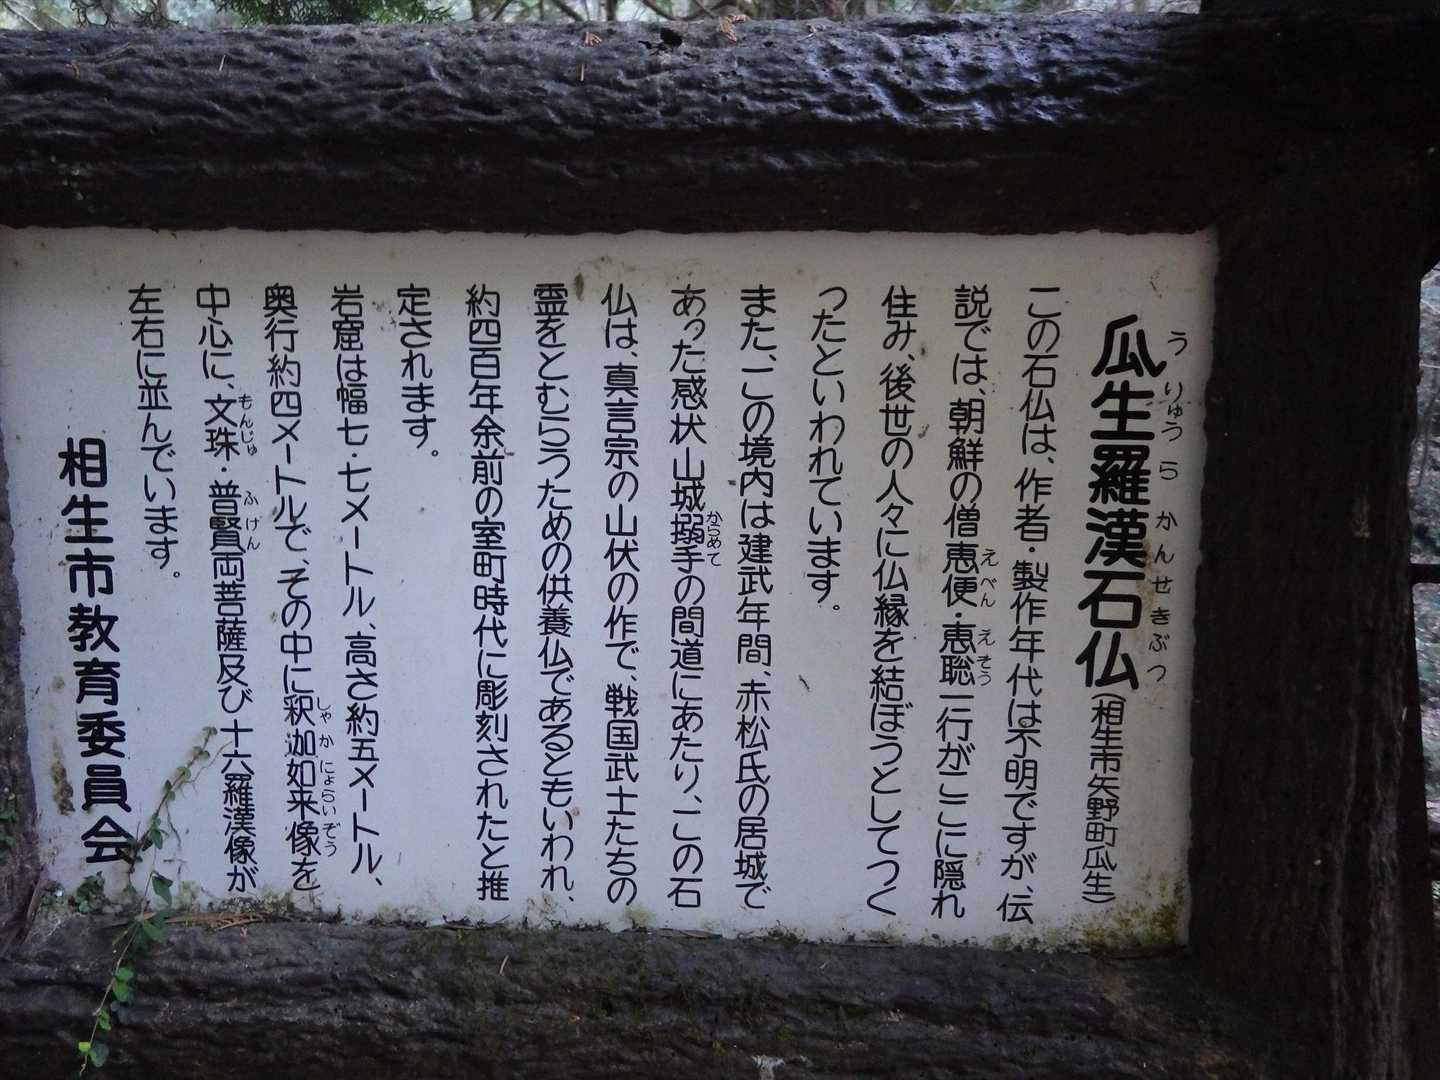 瓜生羅漢石仏(相生市矢野町瓜生)
うりゅうらかんせきぶつ
この石仏は、作者・製作年代は不明ですが、伝
説では、朝鮮の僧恵便・恵聡一行がここに隠れ
えべん えそう
住み、後世の人々に仏縁を結ぼうとしてつく
ったといわれています。
また、この境内は建武年間、赤松氏の居城で
あった感状山城搦手の間道にあたり、この石
からめて
仏は、真言宗の山伏の作で、戦国武士たちの
霊をとむらうための供養仏であるともいわれ、
約四百年余前の室町時代に彫刻されたと推
定されます。
岩窟は幅七・七メートル、高さ約五メートル、
奥行約四メートルで、その中に釈迦如来像を
しゃかにょらいぞう
中心に、文珠・普賢両菩薩及び十六羅漢像が
もんじゅ ふげん
左右に並んでいます。
相生市教育委員会